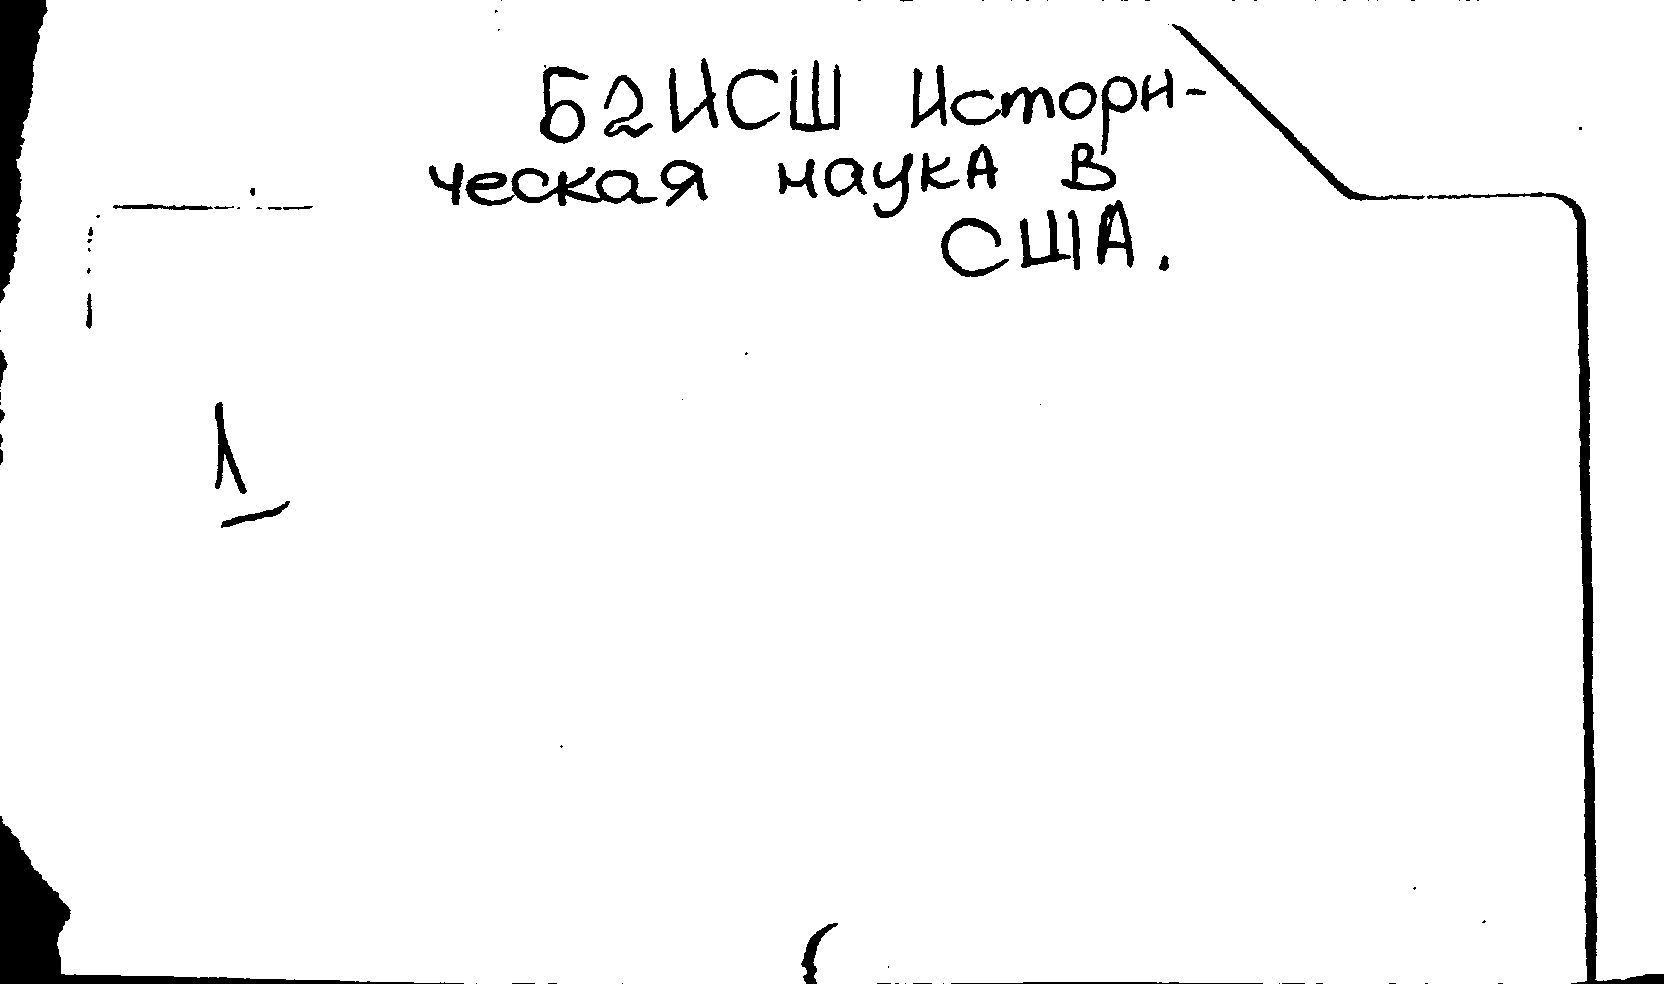 Б2ИСШ Истори-
ческая наука в
США.
1